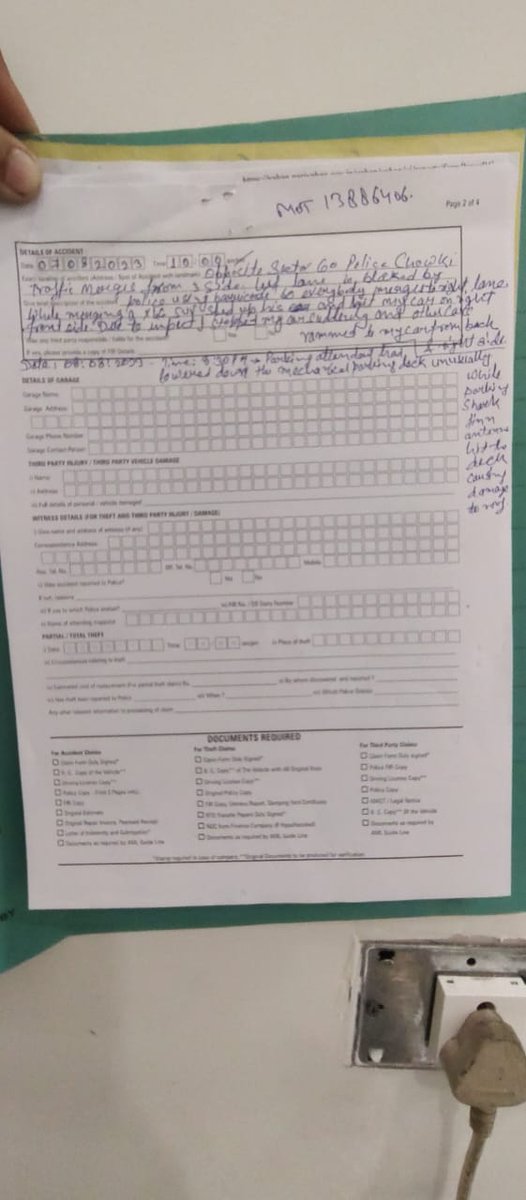 MOT 13886406.
Page 2 of 4
DETAILS OF ACCIDENT
Date 07082023 Time 10:00
Opposite Sector 60 Police Chowki
Traffic Merges from 3 Side left lane is blocked by
police using baricade so everybody merges to right lane
While merging a XL6 SUV and hit my car on right
front side Due to impact I stopped my car and other car
rammed to my car from back
If yes, please provide a copy of FIR Details & right side.
Date: 08:08:2023 - Time: 8:30 PM Parking attendant had
lowered down the mechanical parking deck unusually
while
parking
Shark
finn
antenna
hit to
deck
causing
damage
to roof
DETAILS OF GARAGE
Garage Name
Garage Address
Garage Phone Number
Garage Contact Person
THIRD PARTY INJURY / THIRD PARTY VEHICLE DAMAGE
i) Name
ii) Address
iii) Full details of personal / vehicle damaged
WITNESS DETAILS (FOR THEFT AND THIRD PARTY INJURY / DAMAGE)
i) Give name and address of witness (if any)
Correspondence Address
Res. Tel. No. Off. Tel. No. Mobile
ii) Was accident reported to Police? Yes No
If not, reasons
iii) If yes to which Police station? iv) FIR No. / CR Diary Number
v) Name of attending inspector
PARTIAL / TOTAL THEFT
i) Date Time ii) Place of theft
iii) Circumstances relating to theft
iv) Estimated cost of replacement (For partial theft claim) Rs. v) By whom discovered and reported ?
vi) Has theft been reported to Police vii) When ? viii) Which Police Station
Any other relevant information in processing of claim
DOCUMENTS REQUIRED
For Accident Claims For Theft Claims For Third Party Claims
Claim Form Duly Signed* Claim Form Duly Signed* Claim Form Duly signed*
R. C. Copy of the Vehicle** R. C. Copy** of The Vehicle with All Original Keys Police FIR Copy
Driving License Copy** Driving License Copy** Driving License Copy**
Policy Copy - (First 2 Pages only) Original Policy Copy Policy Copy
FIR Copy FIR Copy, MACT / Legal Notice
Original Estimate RTO Transfer Papers Duly Signed* R. C. Copy** Of the Vehicle
Original Repair Invoice, Payment Receipt NOC from Finance Company (If Hypothecated) Documents as required by
Letter of Indemnity and Subrogation* Documents as required by AML Guide Line AML Guide Line
Documents as required by AML Guide Line
*Stamp required in case of company. **Original Documents to be produced for verification.